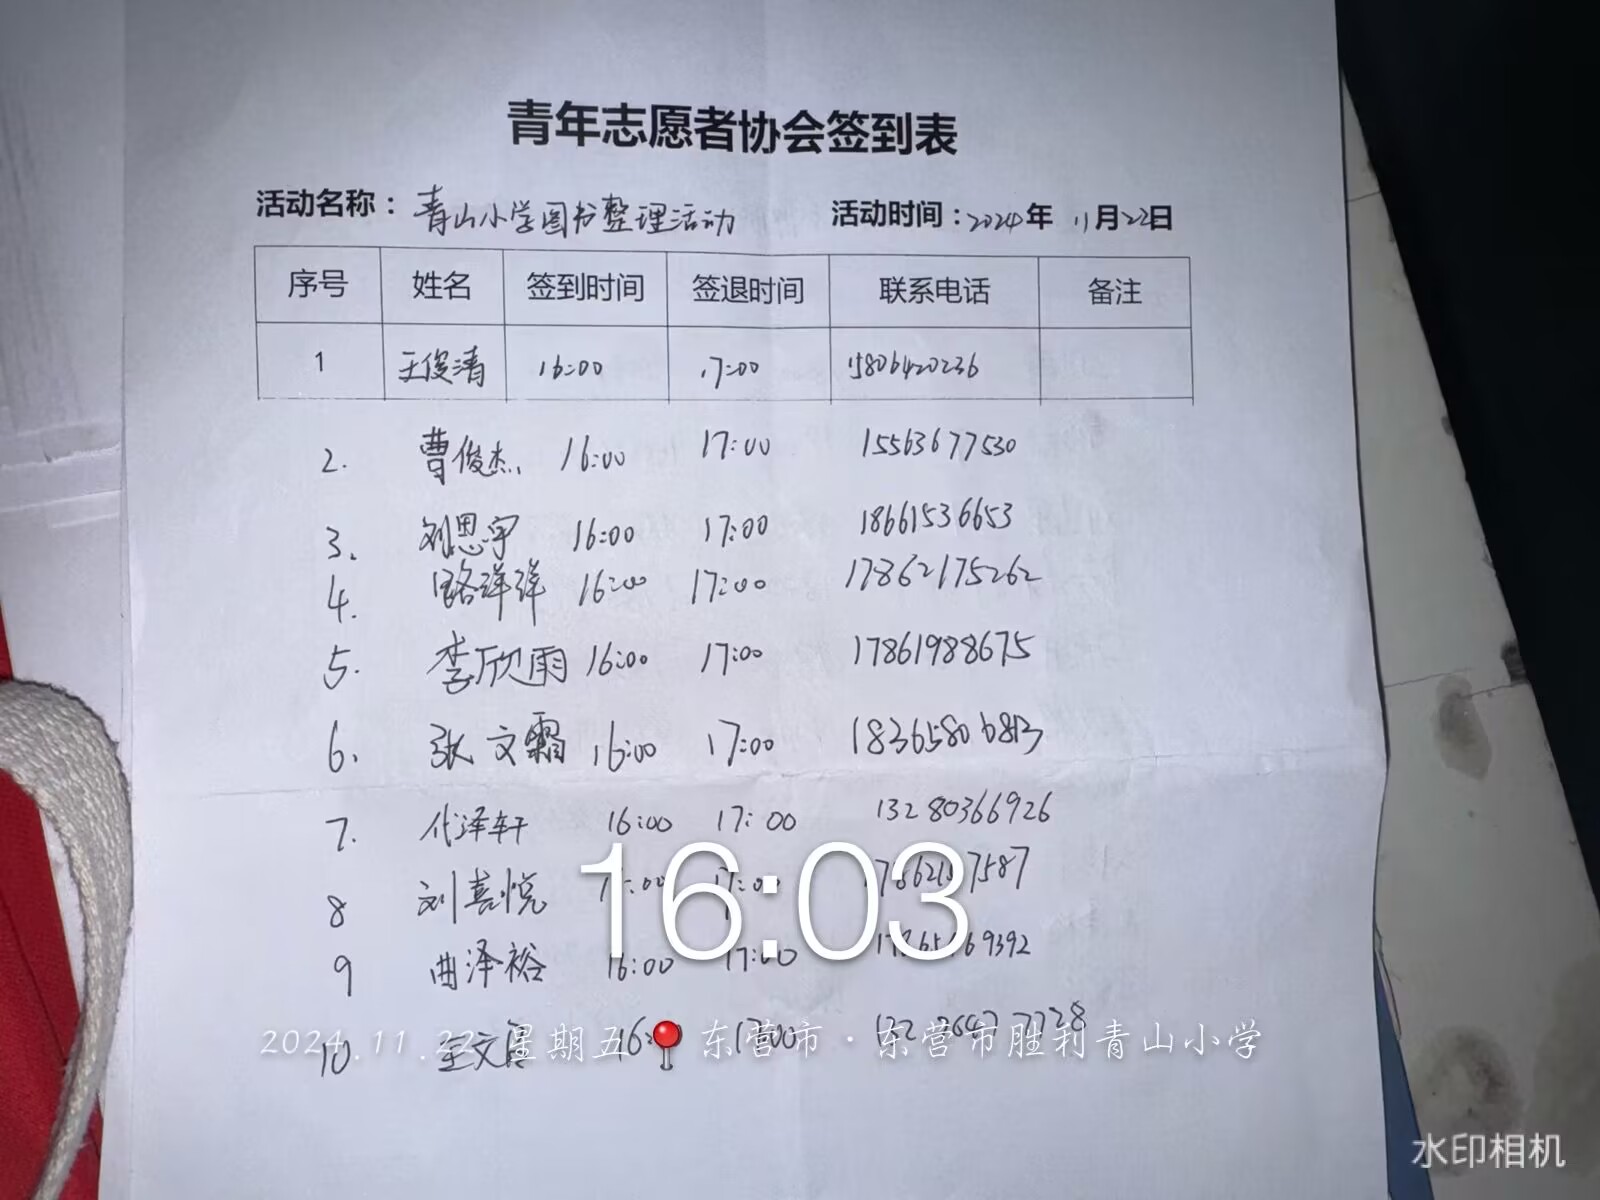 青年志愿者协会签到表
活动名称：青山小学图书整理活动 活动时间：2024年 11月22日
序号 姓名 签到时间 签退时间 联系电话 备注
1 王俊清 16:00 17:00 15806420236
2. 曹俊杰 16:00 17:00 15563677530
3. 刘思宇 16:00 17:00 18661536653
4. 路洋洋 16:00 17:00 17862175262
5. 李欣雨 16:00 17:00 17861988675
6. 张文霜 16:00 17:00
7. 代泽轩 16:00 17:00 13280366926
8 刘喜悦
9 曲泽裕 16:00 17:00
16:03
10
2024.11.22 星期五 东营市·东营市胜利青山小学
水印相机